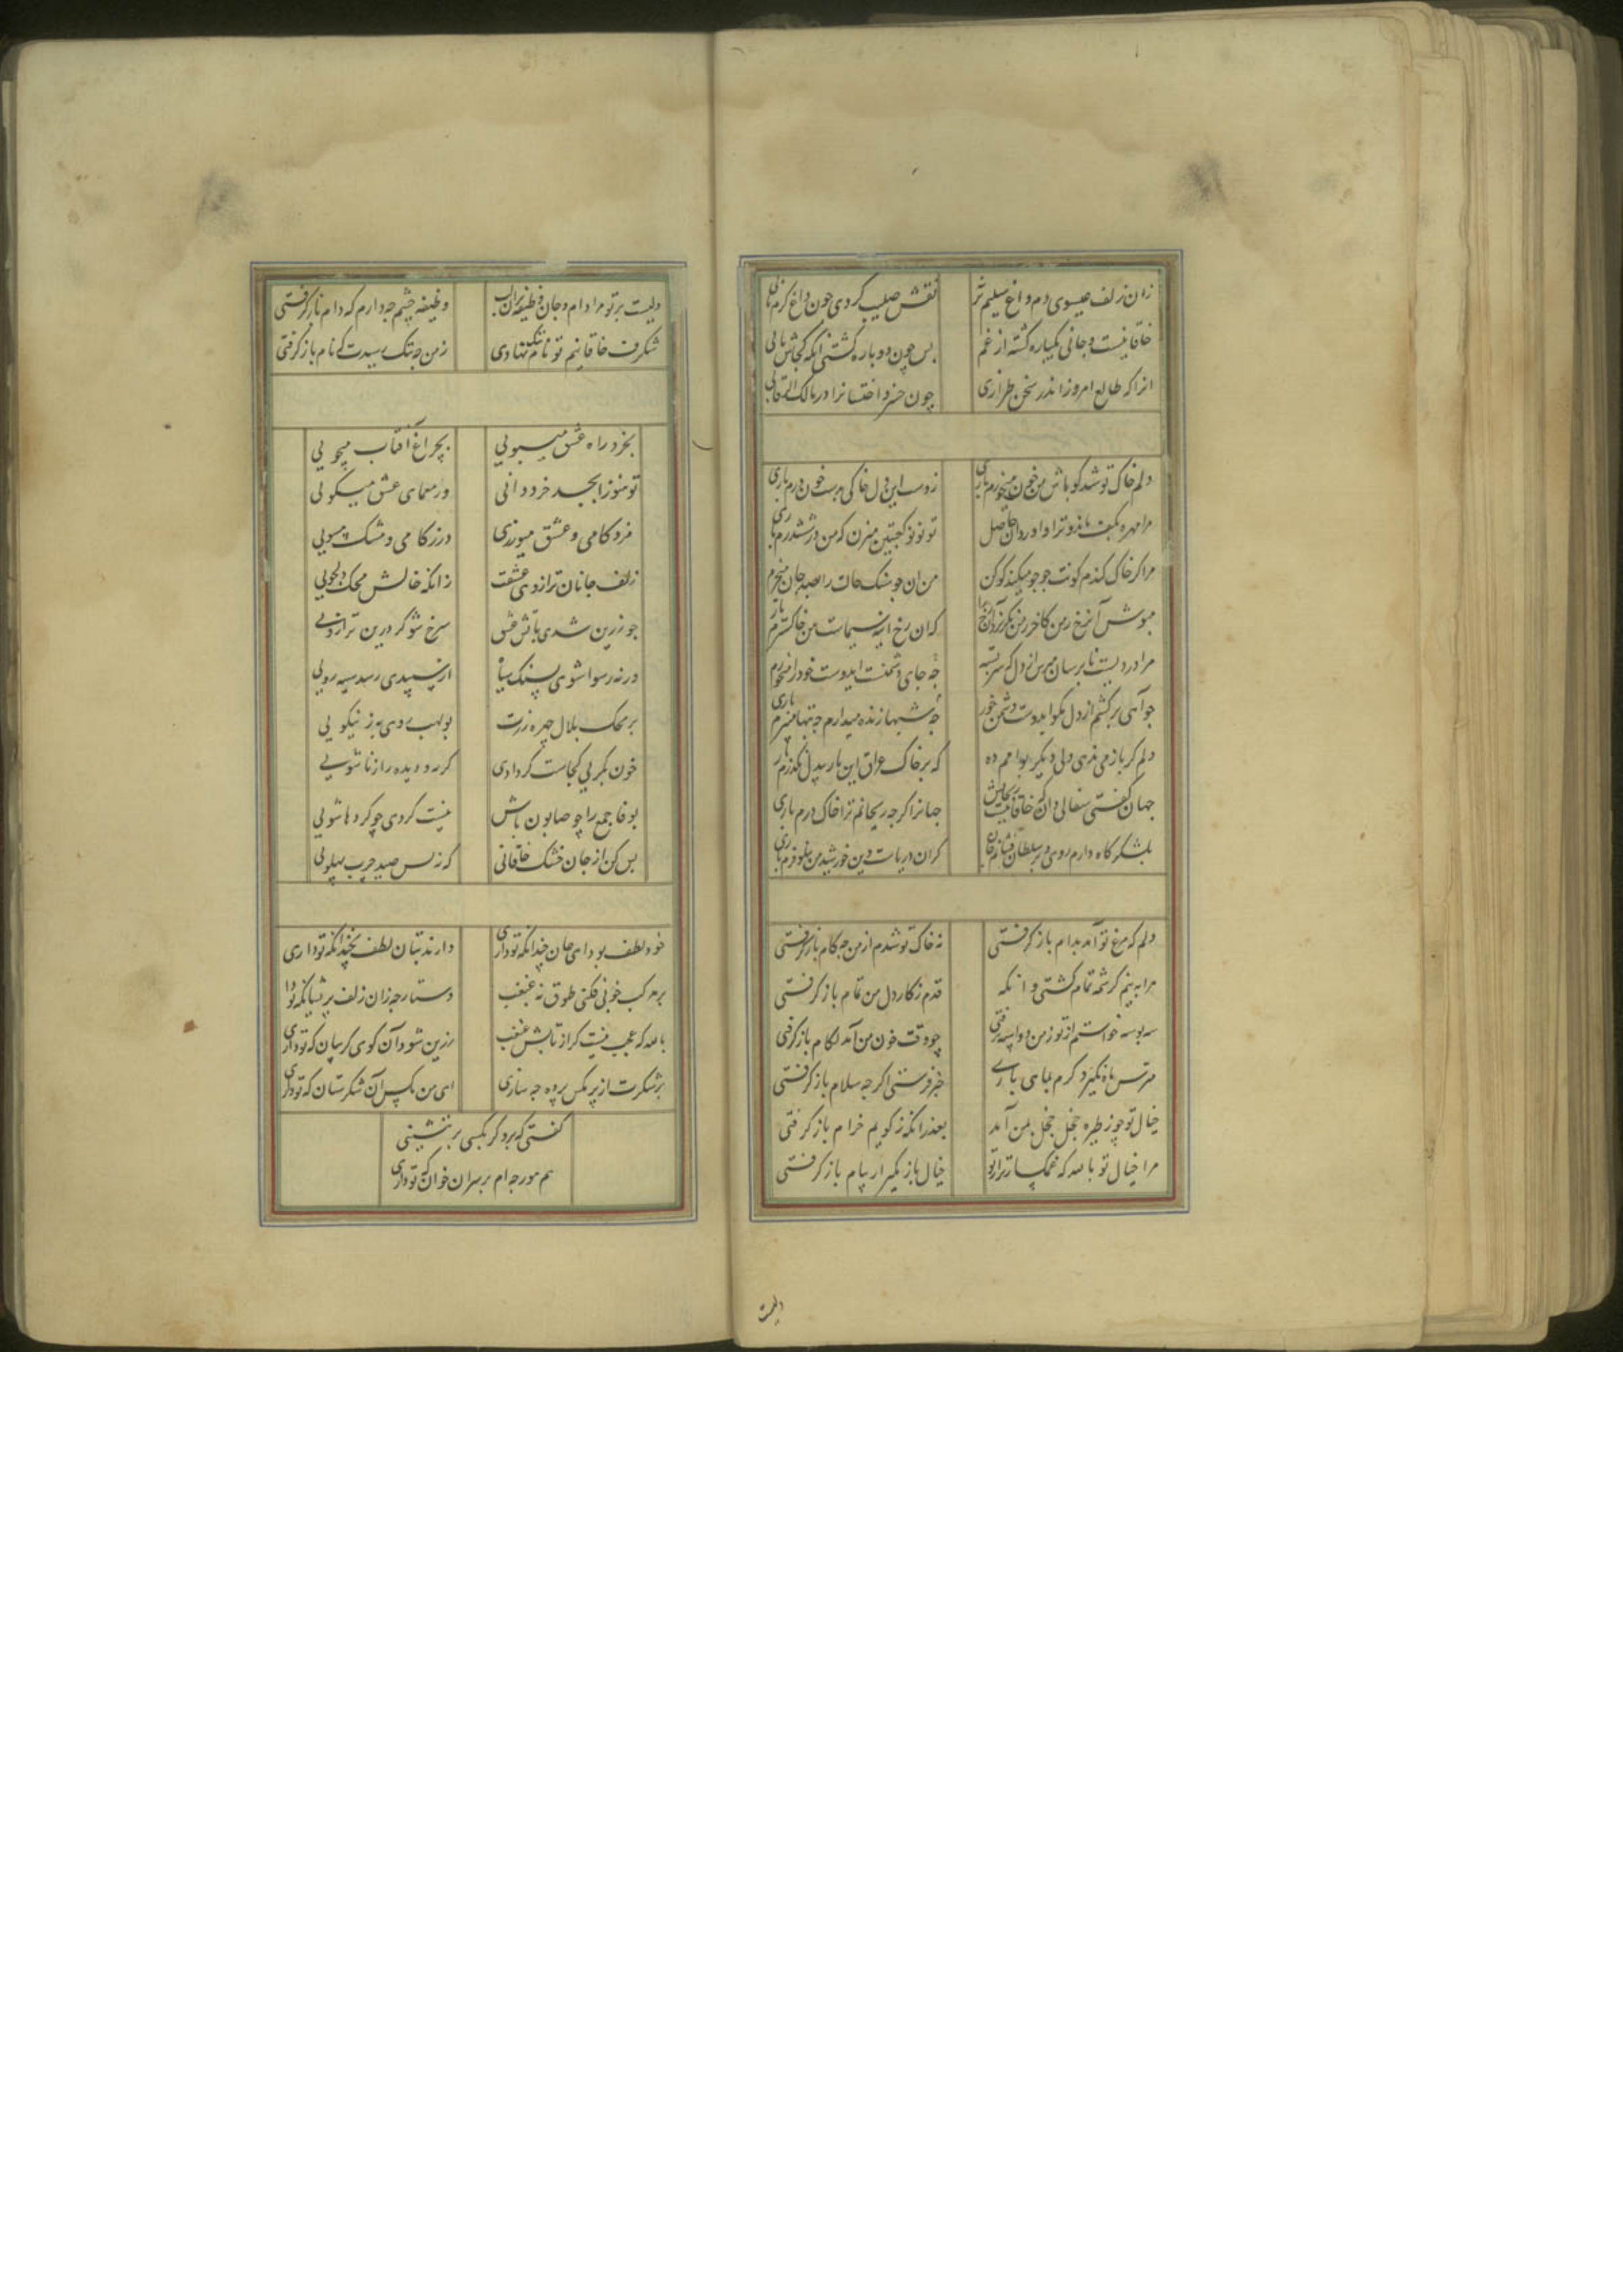 زان زلف عیسوی دم داغ سلیم تر نقش صلیب کردی چون داغ کرم تابی
خاقانیست و جانی یکباره کشته از غم پس چون دوباره کشتی آنکه کجاش یابی
انرا که طالع امروز اندر سخن طرازی چون خسرو اختسانرا در مالک الرقابی
دلم خاک تو شد کو باش من خون میخورم باری ز دست این دل خاکی بدست خون درم باری
مرا مهره بکف ماند و ترا داو روان حاصل تو نو نو کعبتین میزن که من در ششدرم باری
مرا کر خاک کندم کونت جو جو میکند کو کن من ان جو سنک حانت را بصد جان میخرم
مپوش آن رخ ز من کاخر ز من که ان رخ اینه سیماست من خاکسترم
مرا دردیست نابرسان مپرس از دل که سربسته چه جای دشمنست ایدوست خود را میخورم
چو آهی برکشم از دل مکو ایدوست دشمن خور چه شبها زنده میدارم چه تبها میبرم باری
دلم کر باز می ندهی دلی دیکر بوامم ده که بر خاک عراق این بار بیدل نکذرم
جهان کفتی سفالی دان که خاقانیست ریحانش جهانرا کر چه ریحانم ترا خاک درم باری
بلشکر کاه دارم روی و بر سلطان فشانم جان کزان دریاست وین خورشید من نیلوفرم باری
دلم که مرغ تو آمد بدام باز کرفتی نه خاک تو شدم از من چه کام باز کرفتی
مرا به نیم کرشمه تمام کشتی و انکه قدم ز کار دل من تمام باز کرفتی
سه بوسه خواستم از تو ز من دو اسپه برفتی چو وقت خون من آمد لکام باز کرفتی
خبر فرستی اکر چه سلام باز کرفتی
خیال تو چو ز طیره خجل خجل بمن آمد بعذر انکه ز کویم خرام باز کرفتی
مرا خیال تو بالله که غمکسارتر از تو خیال باز مکیر ار پیام باز کرفتی
دلیست
دلیست بر تو مرا دام و جان وظیفه بر ان لب وظیفه چشم چه دارم که دام باز کرفتی
شکرف خاقانیم تو نام نهادی ز من چه ننک رسیدت که نام باز کرفتی
بخرد راه عشق میپویی بچراغ آفتاب میجویی
تو هنوز ابجد خرد دانی وز معمای عشق میکویی
مرد کامی و عشق میورزی در زکامی و مشک میبویی
زلف جانان ترازوی عشقست زانکه خالش محک دلجویی
چو زرین شدی باتش عشق سرخ شو کر درین ترازویی
ورنه رسوا شوی بسنک سیاه از سپیدی رسد سیه رویی
بر محک بلال چهره زرت بولهب روی به ز نیکویی
خون بکریی کجاست کر دادی کرنه دو دیده راز ناشویی
بوفا جمع را چو صابون باش نیست کردی چو کرد ها شویی
بس کن از جان خشک خاقانی که نه بس صید چرب پهلویی
خوذ لطف بود ای جان چندانکه تو داری دارند بتان لطف نچندانکه تو داری
بر مرکب خوبی فکنی طوق ز غبغب دستارچه زان زلف پریشانکه تو دا
بالله که عجب نیست کر از تابش غبغب زرین شود آن کوی کریبان که تو داری
بر شکرت از پر مکس پرده چه سازی ای من مکس آن شکرستان که تو داری
کفتی که برو کر مکسی بر ننشینی
هم مورچه ام بر سر ان خوان که تو داری